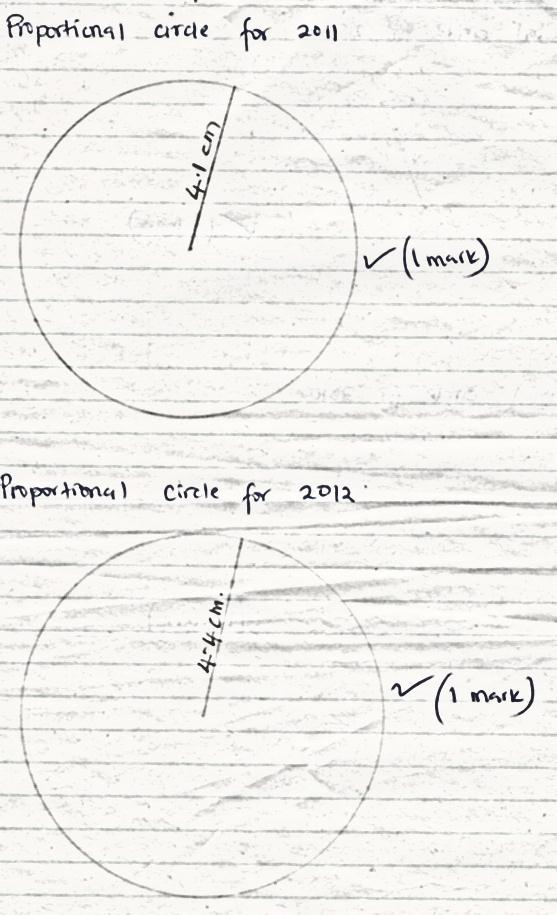 Proportional circle for 2011
4.1 cm
✓ (1 mark)
Proportional circle for 2012
4.4 cm.
✓ (1 mark)